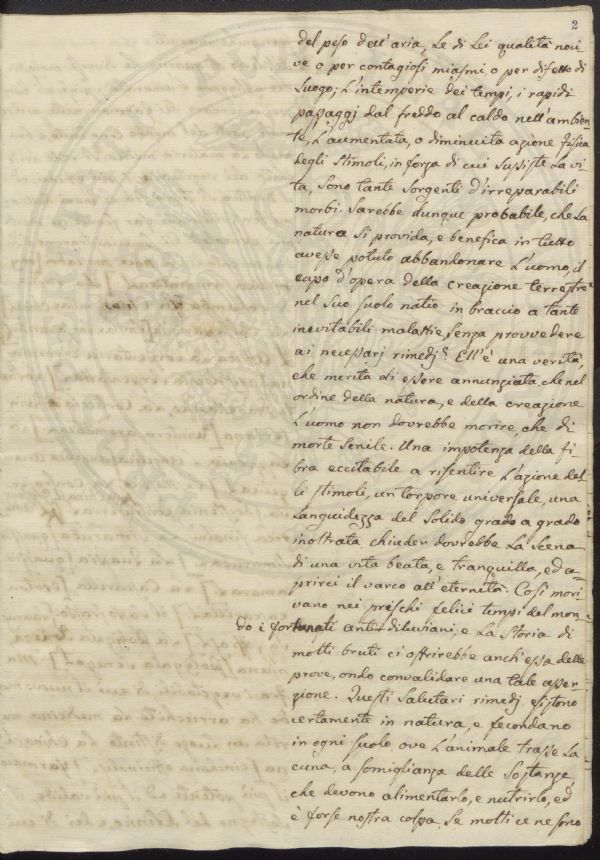 2
del peso dell'aria, Le di Lei qualità noci-
ve o per contagiosi miasmi, o per difetto di
Luogo; L'intemperie dei tempi, i rapidi
passaggi dal freddo al caldo nell'ambien-
te, L'aumentata, o diminuita azione fisica
degli Stimoli, in forza di cui sussiste La vi-
ta, Sono tante Sorgenti d'irreparabili
morbi. Sarebbe dunque probabile, che La
natura Sì provida, e benefica in tutto
avesse potuto abbandonare L'uomo, il
capo d'opera della creazione terrestre
nel Suo Suolo natio in braccio a tante
inevitabili malattie, Senza provvedere
ai necessarj rimedj? Ell'è una verità,
che merita di essere annunziata, che nel
ordine della natura, e della creazione
L'uomo non dovrebbe morire, che di
morte Senile. Una impotenza della fi-
bra eccitabile a risentire L'azione del-
li stimoli, un torpore universale, una
Languidezza del Solido grado a grado
inoltrata chiuder dovrebbe La Scena
di una vita beata, e tranquilla, ed a-
prirci il varco all'eternità. Così mori-
vano nei prischi felici tempi del mon-
do i fortunati antidiluviani; e La Storia di
molti bruti ci offrirebbe anch'essa delle
prove, onde convalidare una tale asser-
zione. Questi Salutari rimedj esistono
certamente in natura, e fecondano
in ogni Suolo, ove L'animale trasse La
cuna, a somiglianza delle Sostanze,
che devono alimentarlo, e nutrirlo, ed
è forse nostra colpa, Se molti ce ne sono